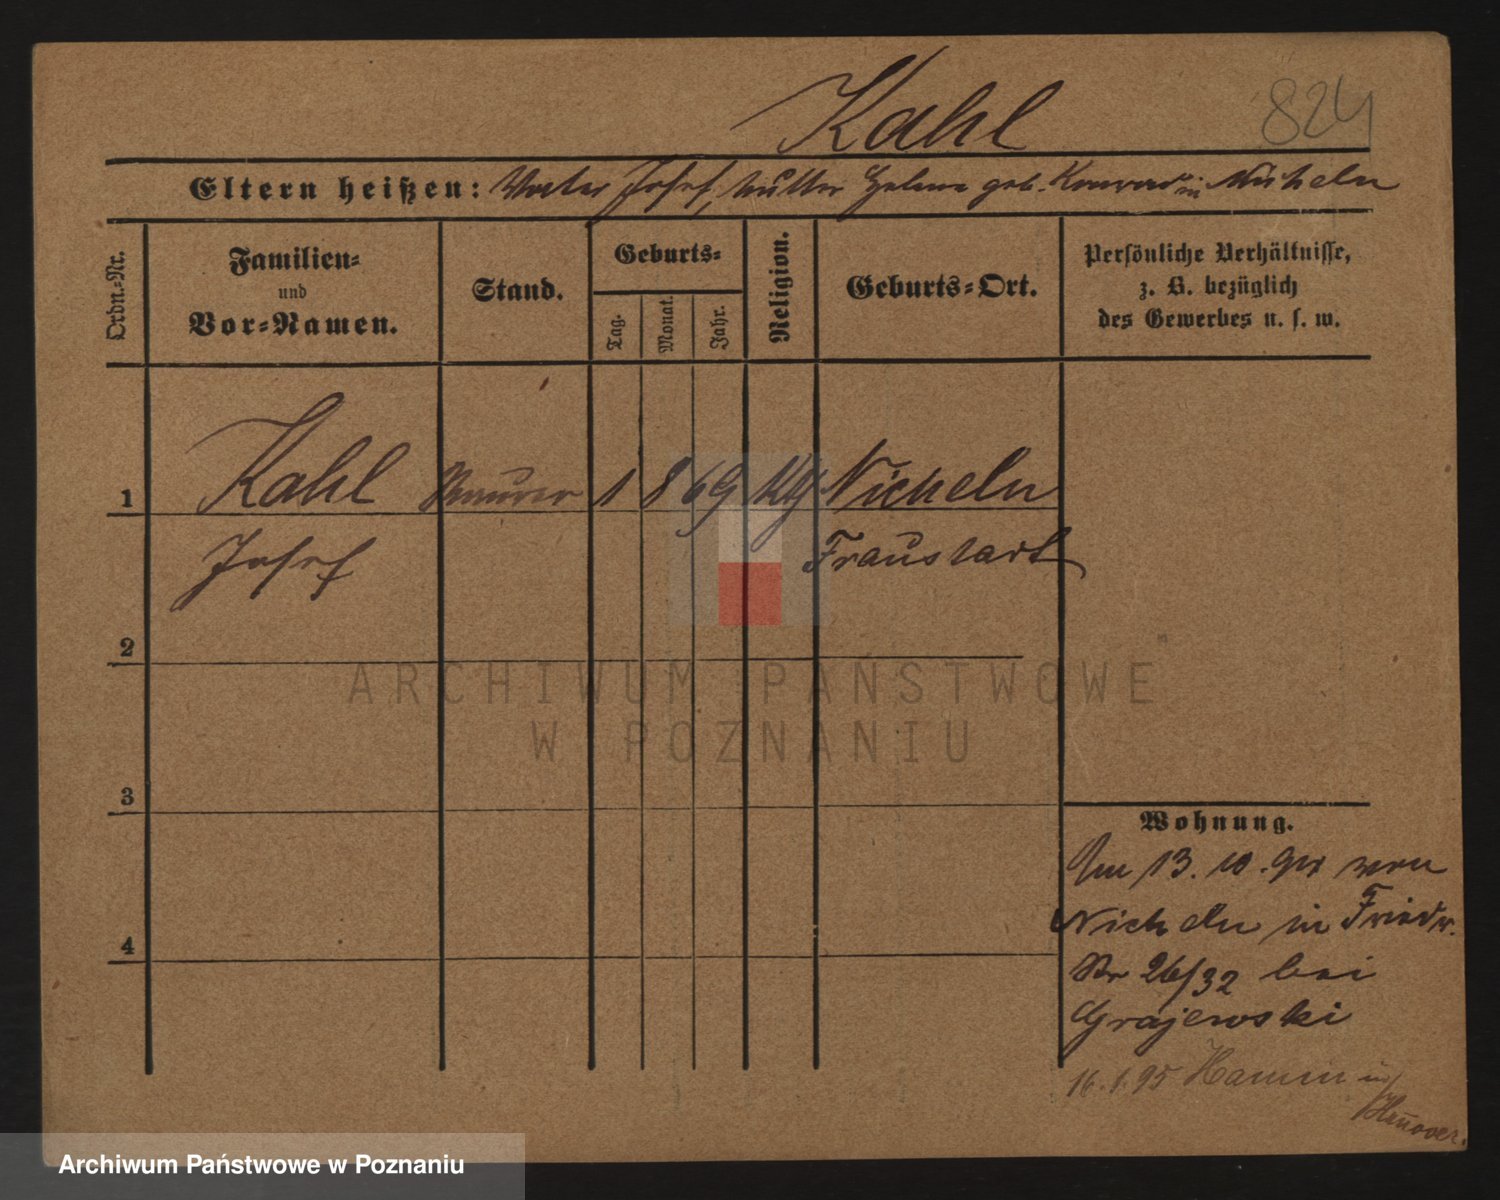 Kahl
824
Eltern heißen: Vater Josef, Mutter Helene geb. Konrad in Nicheln
Ordn.-Nr.
Familien-
und
Vor-Namen.
Stand.
Geburts-
Tag.
Monat.
Jahr.
Religion.
Geburts-Ort.
Persönliche Verhältnisse,
z. B. bezüglich
des Gewerbes u. s. w.
1 Kahl Maurer 1 8 69 Nicheln
Josef Fraustadt
2
3
4
Wohnung.
Am 13. 10. von
Nicheln in Friedr.
Str 26/32 bei
Grajewski
16.1.95 in
ARCHIWUM PAŃSTWOWE
W POZNANIU
Archiwum Państwowe w Poznaniu